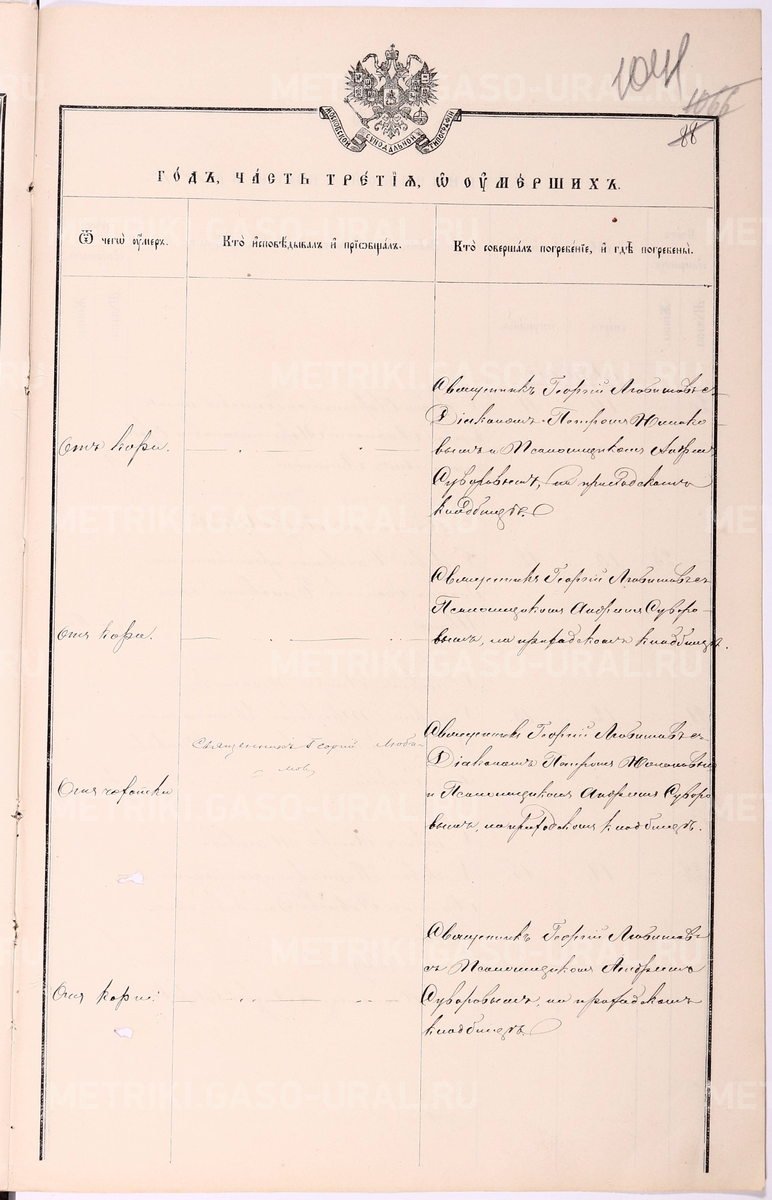 1041
1066
88
МОСКОВСКОЙ СѴНОДАЛЬНОЙ ТИПОГРАФІИ
ГО́ДЪ, ЧА́СТЬ ТРЕ́ТІѦ, Ѽ ОУ҆МЕ́РШИХЪ.
Ѿ чегѡ̀ оу҆́меръ.
Кто̀ и҆сповѣ́дывалъ и҆ прїѡбща́лъ.
Кто̀ соверша́лъ погребе́нїе, и҆ гдѣ̀ погребены̀.
Отъ кори.
Священникъ Георгій Любимовъ съ
Діакономъ Петромъ
вымъ и Псаломщикомъ Андреемъ
Суворовымъ, на приходскомъ
кладбищѣ.
Отъ кори.
Священникъ Георгій Любимовъ съ
Псаломщикомъ Андреемъ Суворо-
вымъ, на приходскомъ кладбищѣ.
Отъ чахотки
Священникъ Георгій Люби-
мовъ
Священникъ Георгій Любимовъ съ
Діакономъ Петромъ
и Псаломщикомъ Андреемъ Суворо
вымъ, на приходскомъ кладбищѣ.
Отъ кори.
Священникъ Георгій Любимовъ
съ Псаломщикомъ Андреемъ
Суворовымъ, на приходскомъ
кладбищѣ.
METRIKI.GASO-URAL.RU